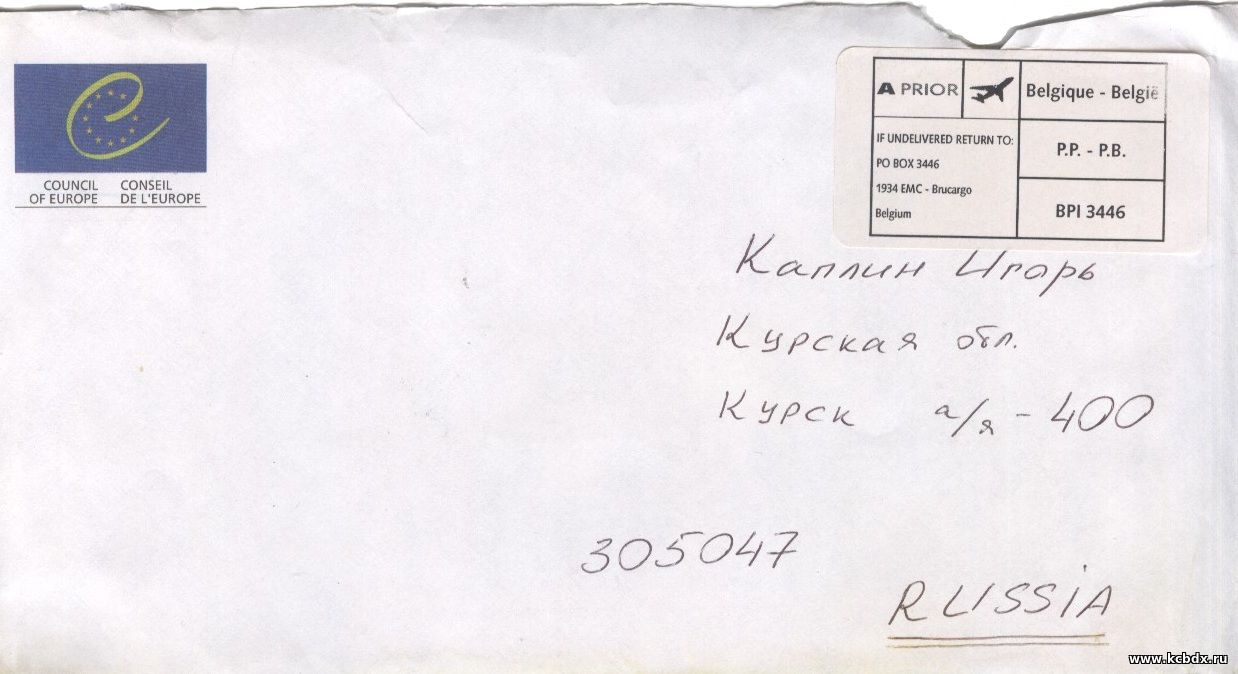 COUNCIL OF EUROPE
CONSEIL DE L'EUROPE
A PRIOR
Belgique - België
IF UNDELIVERED RETURN TO:
PO BOX 3446
1934 EMC - Brucargo
Belgium
P.P. - P.B.
BPI 3446
Каплин Игорь
Курская обл.
Курск а/я - 400
305047
RUSSIA
www.kcbdx.ru